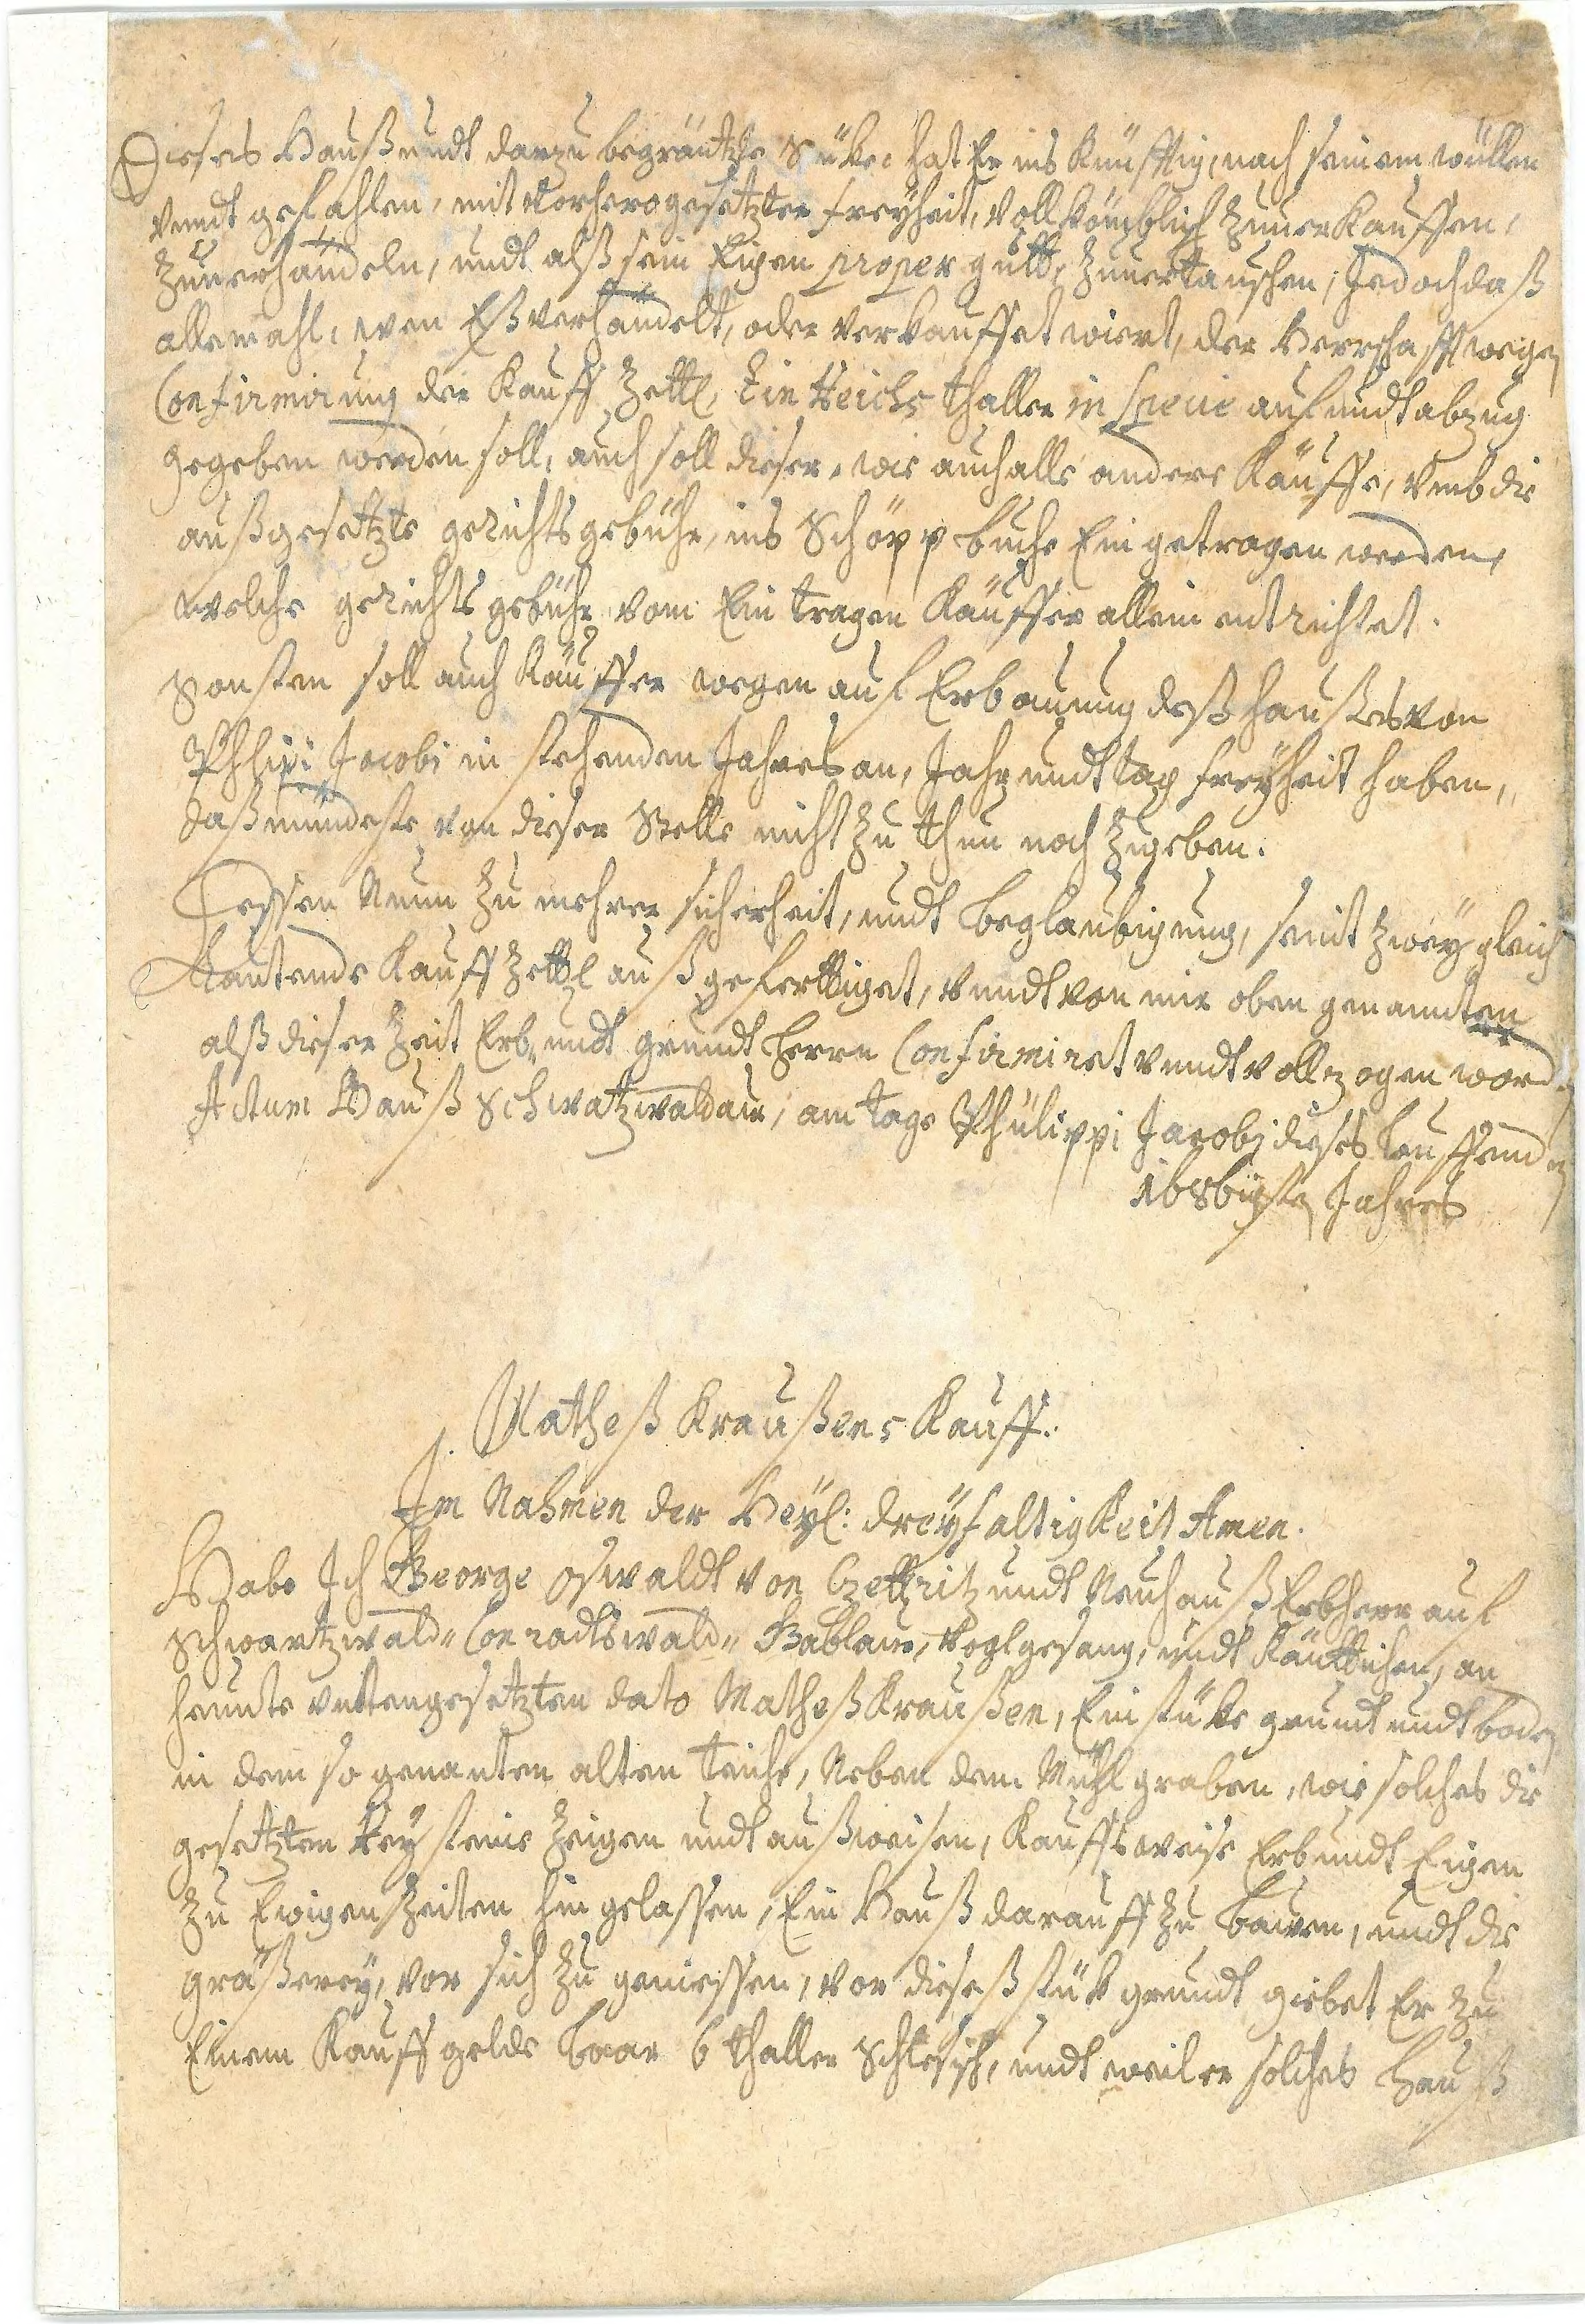 Dieses Hauß undt darzu begräntzte Stüke hat Er ins Künfftig, nach seinem willen
vundt gefahlen, mit Vorherogesetzter freyheit, vollkömblich zuuerkauffen,
zuuerhandeln, undt alß sein Eigen proper gutt, zuuertauschen, Jedoch daß
allemahl, wen Eß verhandelt, oder verkauffet wiert, der Herrschafft wegen
Confirmirung der Kauff Zettl, Ein Reichs thaller in specie auf undt abzug
gegeben werden soll, auch soll dieser, wie auch alle andere Käuffe, vmb die
außgesetzte gerichtsgebühr, ins Schöppbuche Ein getragen werden,
welche gerichts gebühr vom Ein tragen Käuffer allein entrichtet.
Sonsten soll auch Käuffer wegen auf Erbauung deß haußes von
Phlipi Jacobi in stehenden Jahres an, Jahr undt tag freyheit haben,
daß mündeste von dieser Stelle nicht zu thun noch zugeben.
Dessen Nuun zu mehrer sicherheit, undt beglaubigung, seindt zwey gleich
Lautende Kauff Zettl auß gefertiget, vundt von mir oben genandten
alß dieser Zeit Erb, undt grundt Herrn Confirmiret vundt vollzogen worden
Actum Hauß Schwatzwaldau, am tage Phülippi Jacobi dieses lauffenden
1686igsten Jahres
Matheß Kraußens Kauff.
Im Nahmen der Heyl: dreyfaltigkeit Amen.
Habe Ich George Oswaldt von Czettritz undt Neuhauß Erbherr auf
Schwartzwald- Conradtswald- Gablau, Voglgesang, undt Käuttichen, an
heunte vnttengesetzten dato Matheß Kraußen, Ein stüke grundt undt boden
in dem so genanten alten teiche, Neben dem Mühl graben, wie solches die
gesetzten Reysteine zeigen undt außweisen, Kauffsweise Erb undt Eigen
zu Ewigen Zeiten hin gelassen, Ein Hauß darauff zu bauen, undt die
gräßerey, vor sich zu geniessen, vor dieseß stük grundt giebet Er zu
Einem Kauff gelde baar 6 thaller Schlesisch, undt weil er solches Hauß